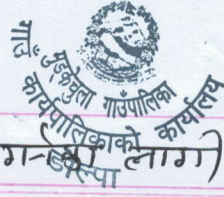 मुड्केचुला गाउँपालिका
गाउँ कार्यपालिकाको कार्यालय
डोल्पा
लागी